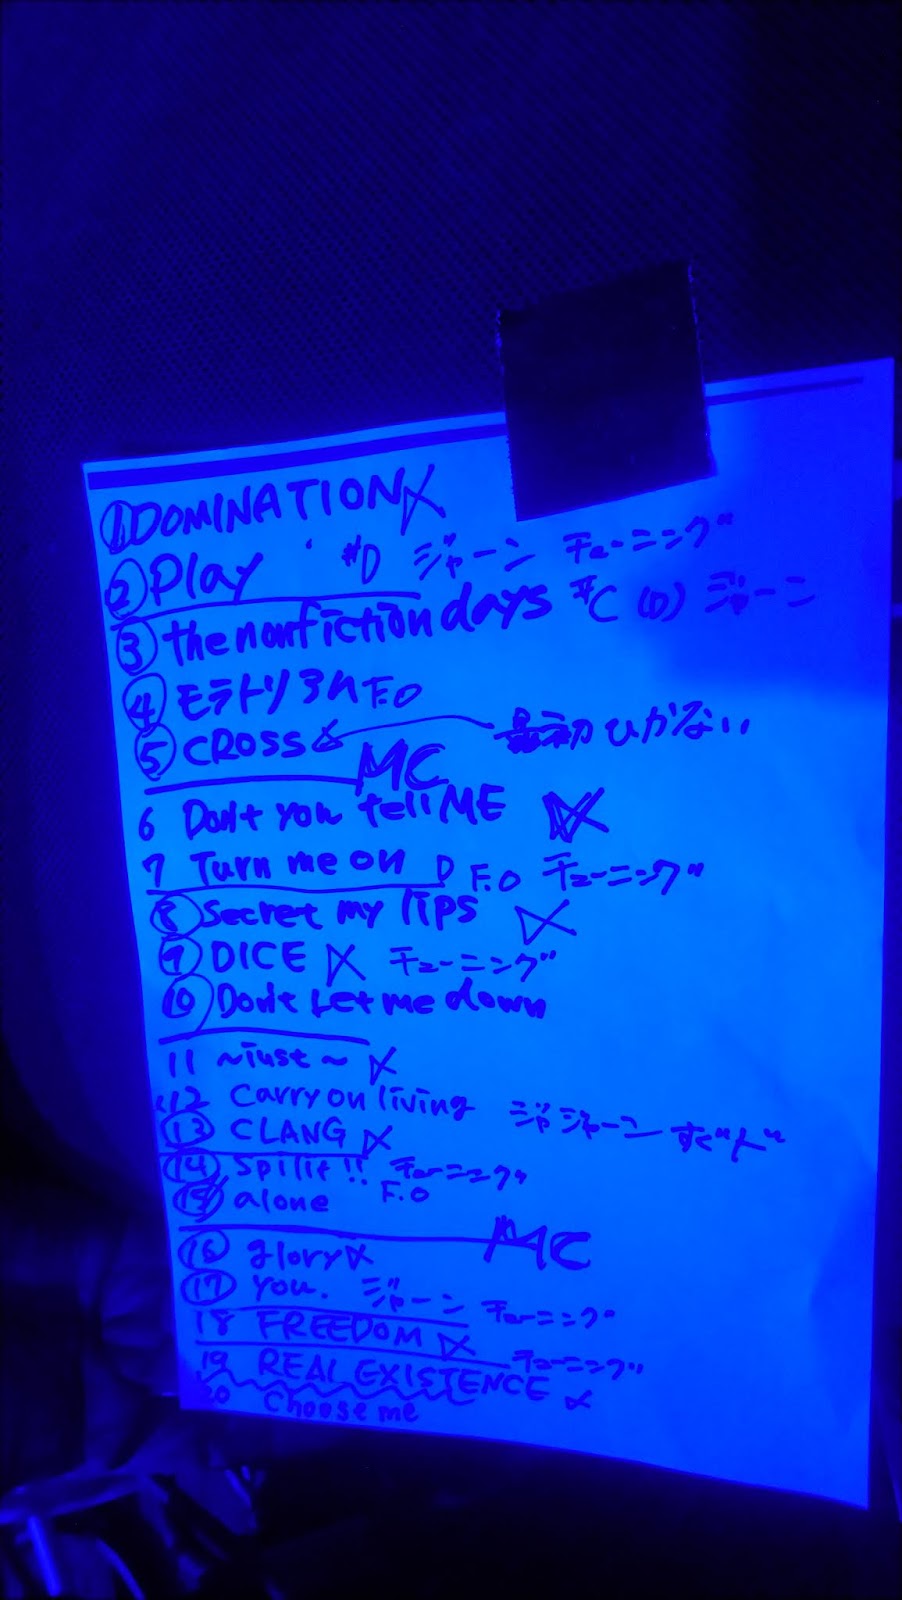 ① DOMINATION
② Play #D ジャーン チューニング
③ the nonfiction days #C (D) ジャーン
④ モラトリアム F.O
⑤ CROSS 最初ひかない
MC
6 Don't you tell ME
7 Turn me on D F.O チューニング
⑧ Secret my lips
⑨ DICE チューニング
⑩ Don't Let me down
11 ~just~
12 Carry on living ジャジャーン すぐ
⑬ CLANG
⑭ Spilit!! チューニング
⑮ alone F.O
MC
⑯ glory
⑰ you. ジャーン チューニング
18 FREEDOM
19 REAL EXISTENCE チューニング
20 Choose me